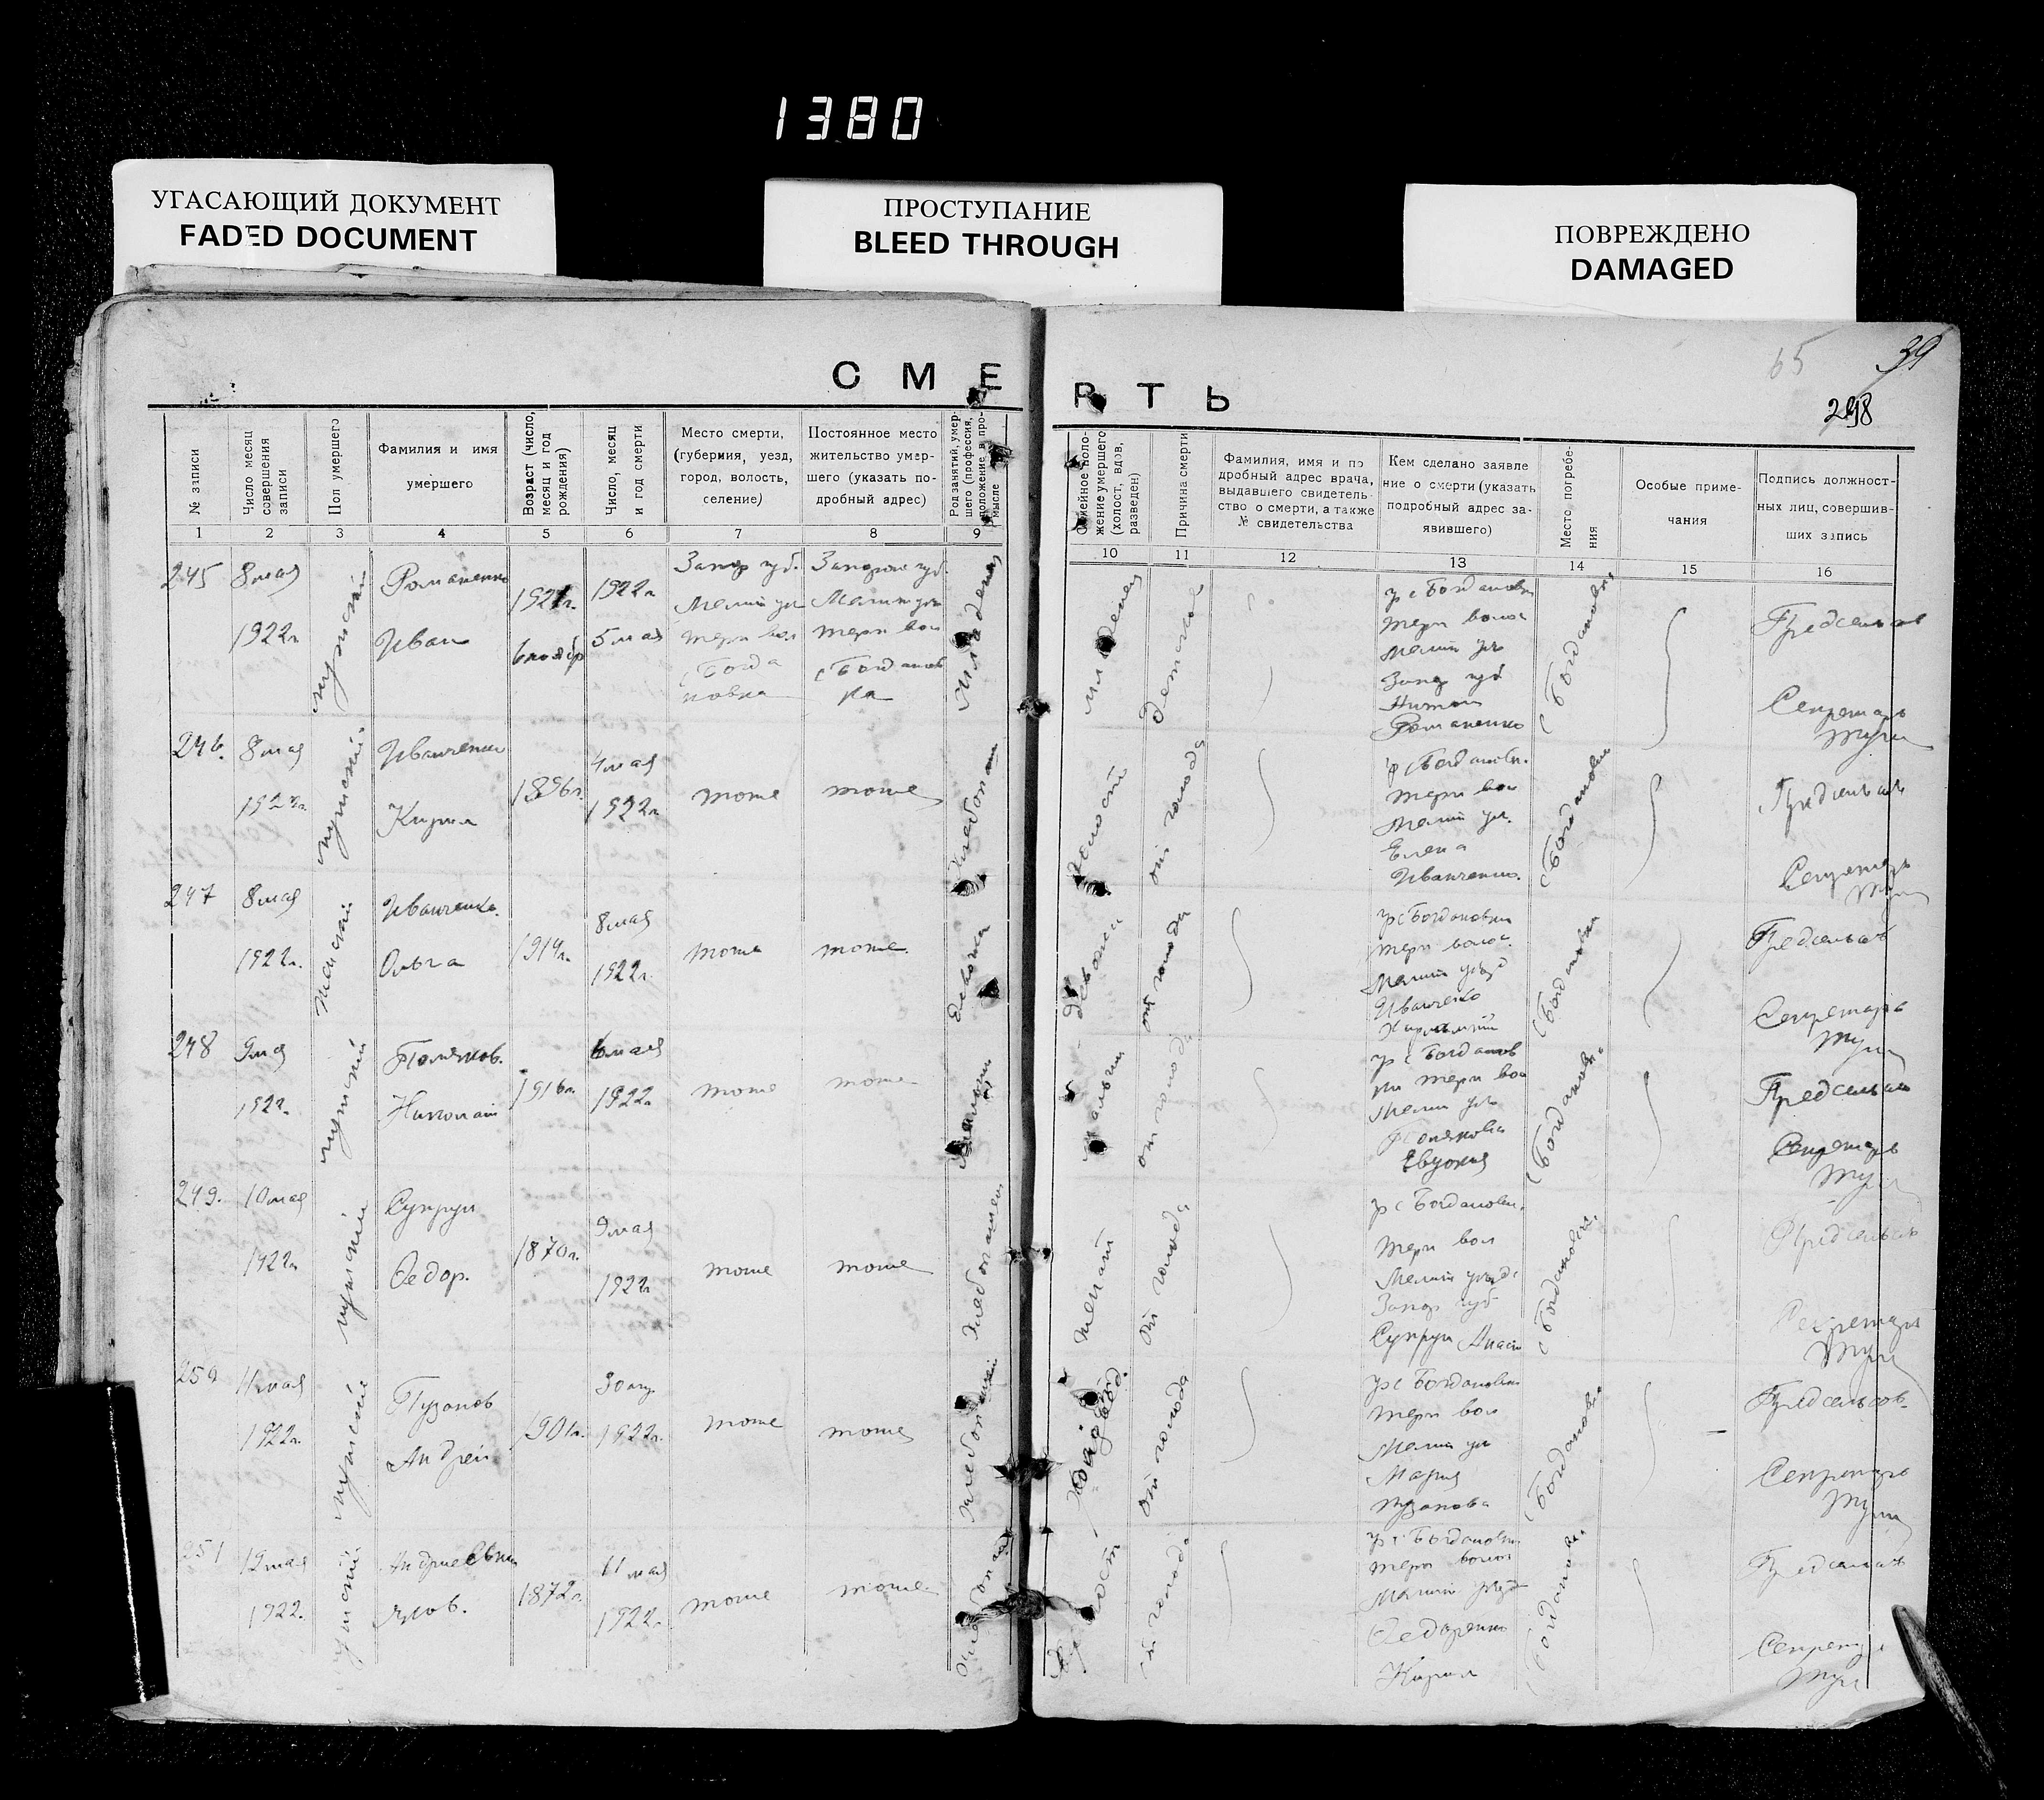 1380
УГАСАЮЩИЙ ДОКУМЕНТ
FADED DOCUMENT
ПРОСТУПАНИЕ
BLEED THROUGH
ПОВРЕЖДЕНО
DAMAGED
65
39
298
СМЕРТЬ
№ записи
Число месяц
совершения
записи
Пол умершего
Фамилия и имя
умершего
Возраст (число,
месяц и год
рождения)
Число, месяц
и год смерти
Место смерти,
(губерния, уезд,
город, волость,
селение)
Постоянное место
жительство умер-
шего (указать по-
дробный адрес)
Род занятий, умер-
шего (профессия,
положение в про-
мысле
Семейное поло-
жение умершего
(холост, вдов,
разведен)
Причина смерти
Фамилия, имя и по
дробный адрес врача,
выдавшего свидетель-
ство о смерти, а также
№ свидетельства
Кем сделано заявле
ние о смерти (указать
подробный адрес за-
явившего)
Место погребе-
ния
Особые приме-
чания
Подпись должност-
ных лиц, совершив-
ших запись
1 2 3 4 5 6 7 8 9 10 11 12 13 14 15 16
245
8 мая
1922г.
мужской
Романенко
Иван
1921г.
6 ноябр
1922г
5 мая
Запор губ.
Мелит уез
терп вол
с Богда
новка
Запорож губ.
Мелит уез
терп вол
с Богданов
ка
Младенец
младенец
детской
гр с Богдановки
терп волос
мелит уез
Запор губ
Романенко
с Богдановк
Предсельсов
Секретарь
246.
8 мая
1922г.
мужской
Иванченко
Кирил
1896г.
4 мая
1922г.
тоже
тоже
Хлебопаш
холост
от голода
гр с Богдановк.
терп вол
мелит уез.
Елена
Иванченко.
с Богдановки
Предсельсов
Секретарь
247
8 мая
1922г.
женский
Иванченко.
Ольга
1914г.
8 мая
1922г.
тоже
тоже
девочка
девочка
от голода
гр с Богдановки
терп волос.
мелит уезд
Иванченко
с Богдановки
Предсельсов
Секретарь
248
9 мая
1922г.
мужской
Поляков.
Николай
1916г.
6 мая
1922г.
тоже
тоже
мальчик
мальчик
от голод
гр с Богданов
ки терп вол
Мелит уез
Полякова
Евдокия
с Богдановк.
Предсельсов
Секретарь
249.
10 мая
1922г
мужской
Супрун
Федор.
1870г.
9 мая
1922г
тоже
тоже
Хлебопашец
женат
от голода
гр с Богдановк.
терп вол
Мелит уезд.
Запор губ
Супрун Анаст
с Богдановк.
Предсельсов
Секретарь
250
11 мая
1922г.
мужской
Пузанов
Андрей
1901г.
30 апр
1922г.
тоже
тоже
от голода
гр с Богдановки
терп вол
Мелит уез
Мария
Пузанова
с Богдановк.
Предсельсов.
Секретарь
251
12 мая
1922.
мужской
Андриевский
Яков.
1872г.
11 мая
1922г.
тоже
тоже
Хлебопаш
холост
от голода
гр с Богдановки
терп волос
Мелит уезд
Федоренко
Кирил
Богдановк.
Предсельсов
Секретарь